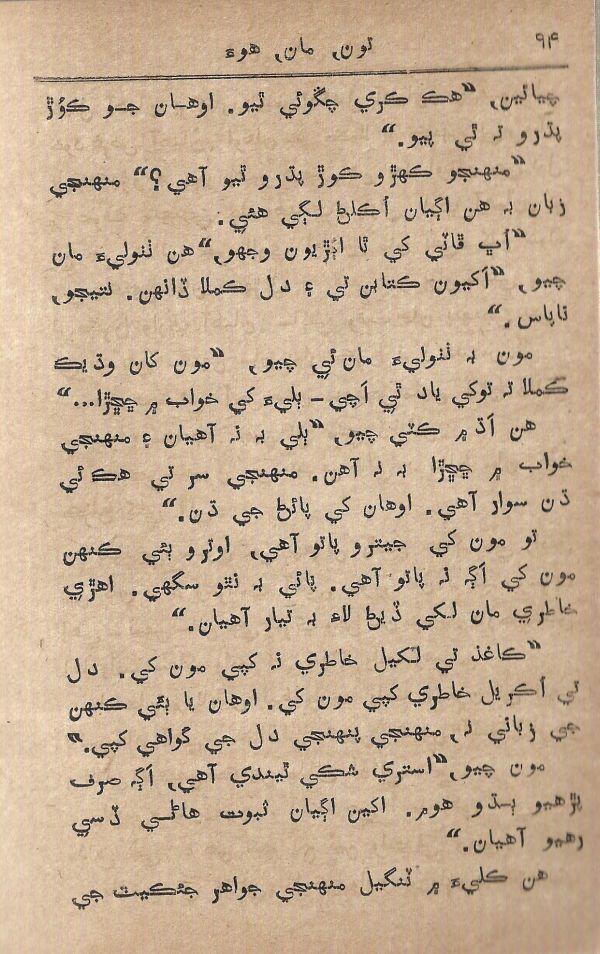 ۹۴
تون، مان، هوءَ
چيائين، ”هڪ ڪري چڱوئي ٿيو. اوهان جو ڪوُڙ
پڌرو نہ ٿي پيو.“
”منهنجو ڪهڙو ڪوڙ پڌرو ٿيو آهي؟“ منهنجي
زبان بہ هن اڳيان اَڪلڻ لڳي هئي.
”اَڀ ڦاٽي کي ٿا اڳڙيون وجهو،“ هن ٺٺوليءَ مان
چيو، ”اَکيون ڪتابن تي ۽ دل ڪملا ڏانهن. نتيجو،
ناپاس.“
مون بہ ٺٺوليءَ مان ئي چيو، ”مون کان وڌيڪ
ڪملا تہ توکي ياد ٿي اَچي – ٻليءَ کي خواب ۾ ڇيڇڙا...“
هن اَڌ ۾ ڪٽي چيو، ”ٻلي بہ نہ آهيان ۽ منهنجي
خواب ۾ ڇيڇڙا بہ نہ آهن. منهنجي سر تي هڪ ئي
ڌن سوار آهي. اوهان کي پائڻ جي ڌن.“
تو مون کي جيترو پاتو آهي، اوترو ٻئي ڪنهن
مون کي اَڳہ نہ پاتو آهي. پائي بہ نٿو سگهي. اهڙي
خاطري مان لکي ڏيڻ لاءِ بہ تيار آهيان.“
”ڪاغذ تي لکيل خاطري نہ کپي مون کي. دل
تي اُڪريل خاطري کپي مون کي. اوهان يا ٻئي ڪنهن
جي زباني نہ، منهنجي پنهنجي دل جي گواهي کپي.“
مون چيو، ”استري شڪي ٿيندي آهي، اَڳہ صرف
پڙهيو ٻڌو هوم. اکين اڳيان ثبوت هاڻي ڏسي
رهيو آهيان.“
هن ڪليءَ ۾ ٽنگيل منهنجي جواهر جئڪيٽ جي